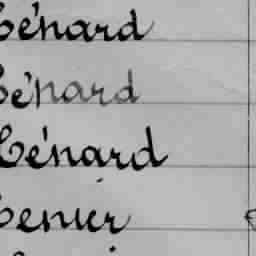 Lénard
Lénard
Lénard
Lenier